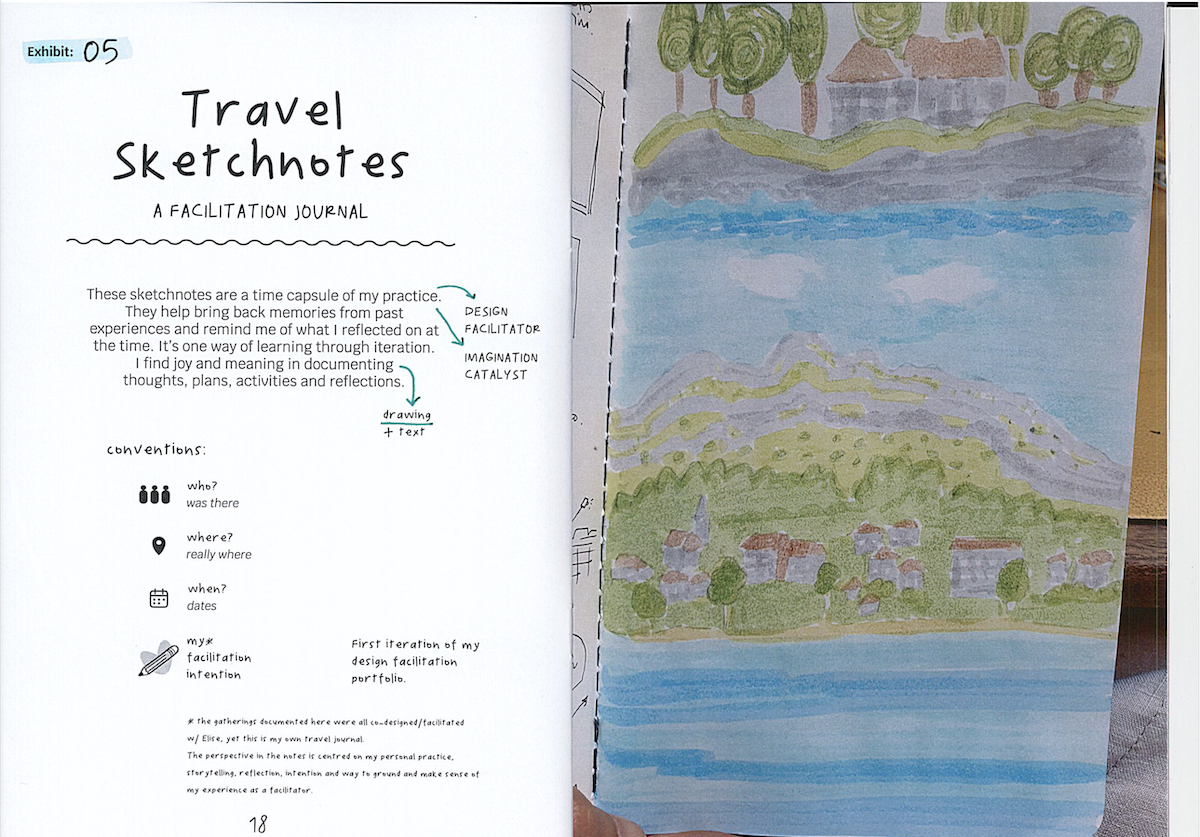 Exhibit: 05
Travel
Sketchnotes
A FACILITATION JOURNAL
These sketchnotes are a time capsule of my practice.
They help bring back memories from past
experiences and remind me of what I reflected on at
the time. It's one way of learning through iteration.
I find joy and meaning in documenting
thoughts, plans, activities and reflections.
DESIGN
FACILITATOR
IMAGINATION
CATALYST
drawing
+ text
conventions:
who?
was there
where?
really where
when?
dates
my*
facilitation
intention
First iteration of my
design facilitation
portfolio.
* the gatherings documented here were all co-designed/facilitated
w/ Elise, yet this is my own travel journal.
The perspective in the notes is centred on my personal practice,
storytelling, reflection, intention and way to ground and make sense of
my experience as a facilitator.
18